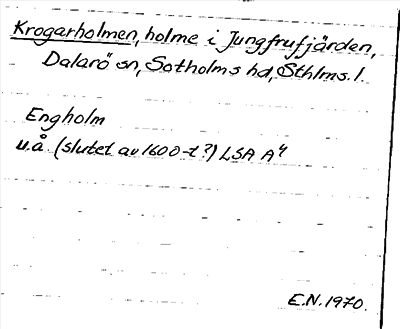 Krogarholmen, holme i Jungfrufjärden,
Dalarö sn, Sotholms hd, Sthlms. l.
Engholm
u.å. (slutet av 1600-t?) LSA A4
E.N. 1970.